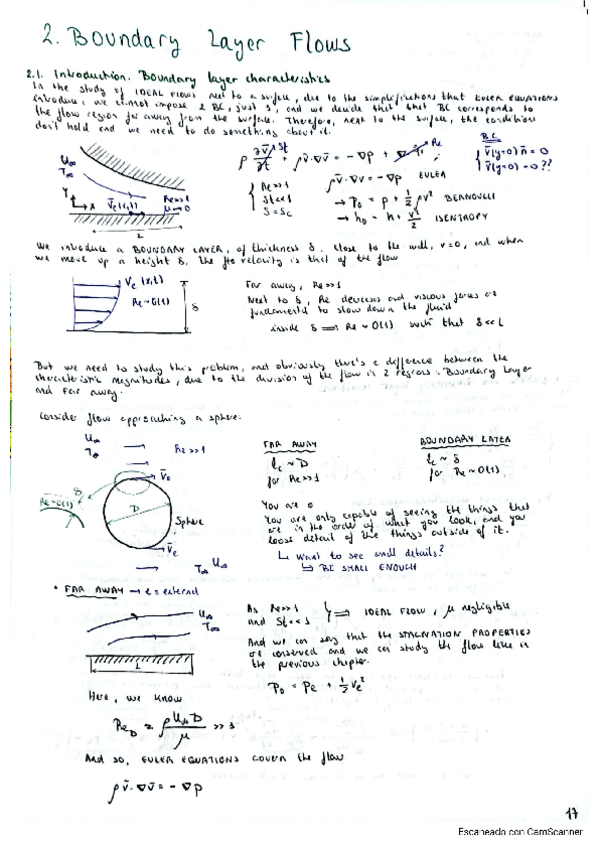 2. Boundary Layer Flows
2.1. Introduction. Boundary layer characteristics
In the study of IDEAL FLOWS next to a surface, due to the simplifications that EULER EQUATIONS
introduce, we cannot impose 2 BC, just 1, and we decide that that BC corresponds to
the flow region far away from the surface. Therefore, next to the surface, the conditions
don't hold and we need to do something about it.
U∞
T∞
Y
x
v̄e(x,t)
Re>>1
μ→0
L
ρ ∂v̄/∂t + ρ v̄·∇v̄ = -∇p +
St
Re
{ Re>>1
St<<1
ρv̄·∇v̄ = -∇p EULER
→ p₀ = p + 1/2 ρv² BERNOULLI
→ h₀ = h + v²/2 ISENTROPY
B.C
{ v̄(y=0) n̄ = 0
v̄(y=0) = 0 ??
We introduce a BOUNDARY LAYER, of thickness δ. Close to the wall, v=0, and when
we move up a height δ, the velocity is that of the flow
Ve(x,t)
Re~O(1)
δ
Far away, Re>>1
Next to δ, Re decreases and viscous forces are
fundamental to slow down the fluid
inside δ ⟹ Re ~ O(1) such that δ<<L
But we need to study this problem, and obviously there's a difference between the
characteristic magnitudes, due to the division of the flow in 2 regions: Boundary Layer
and Far away.
Consider flow approaching a sphere:
U∞
T∞
Re>>1
v̄e
δ
Re~O(1)
D
Sphere
v̄e
T∞ U∞
FAR AWAY
lc ~ D
for Re>>1
BOUNDARY LAYER
lc ~ δ
for Re~O(1)
You are o
You are only capable of seeing the things that
are in the order of what you look, and you
loose detail of the things outside of it.
↳ Want to see small details?
↳ BE SMALL ENOUGH
• FAR AWAY → e = external
U∞
T∞
L
As Re>>1
and St<<1 } ⟹ IDEAL FLOW, μ negligible
And we can say that the STAGNATION PROPERTIES
are conserved and we can study the flow like in
the previous chapter.
P₀ = Pe + 1/2 Ve²
Here, we know
Re_D ≈ ρU∞D/μ >> 1
And so, EULER EQUATIONS GOVERN the flow
ρ v̄·∇v̄ = -∇p
17
Escaneado con CamScanner